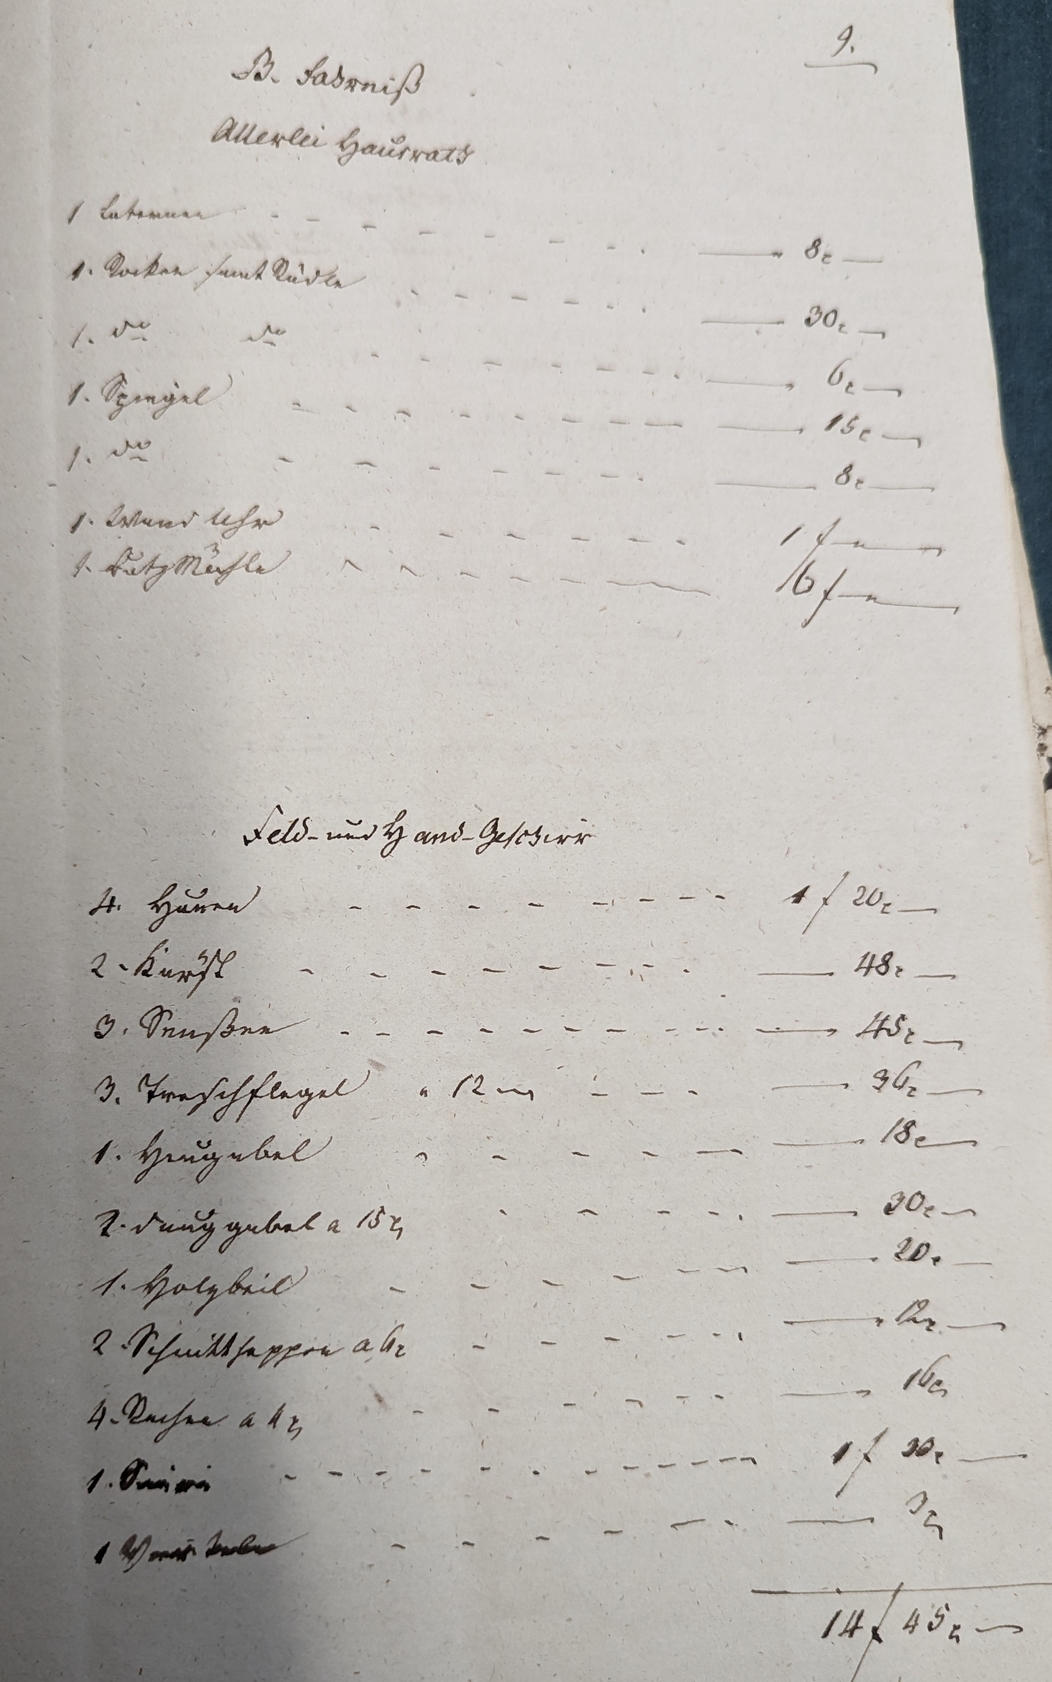 9.
B. Fahrniß
Allerlei Hausrath
1 Laternen - - - - - - - 8x
1. Rocken samt Rädle - - - - - 30x
1. do do - - - - - 6x
1. Spiegel - - - - - - - 15x
1. do - - - - - - 8x
1. Wand Uhr - - - - - 1 f
1. Butzmühle - - - - - 6 f
Feld- und Hand-Geschirr
4. Hauen - - - - - - - 1 f 20x
2. Kärst - - - - - - - 48x
3. Senßen - - - - - - - 45x
3. Treschflegel a 12x - - - 36x
1. Heugabel - - - - - 18x
2. Dunggabel a 15x - - - - 30x
1. Holzbeil - - - - - 20x
2. Schnitthappen a 6x - - - - 12x
4. Rechen a 4x - - - - - 16x
1. Simri - - - - - - - 1 f 30x
1 - - - - - 3x
14 f 45x